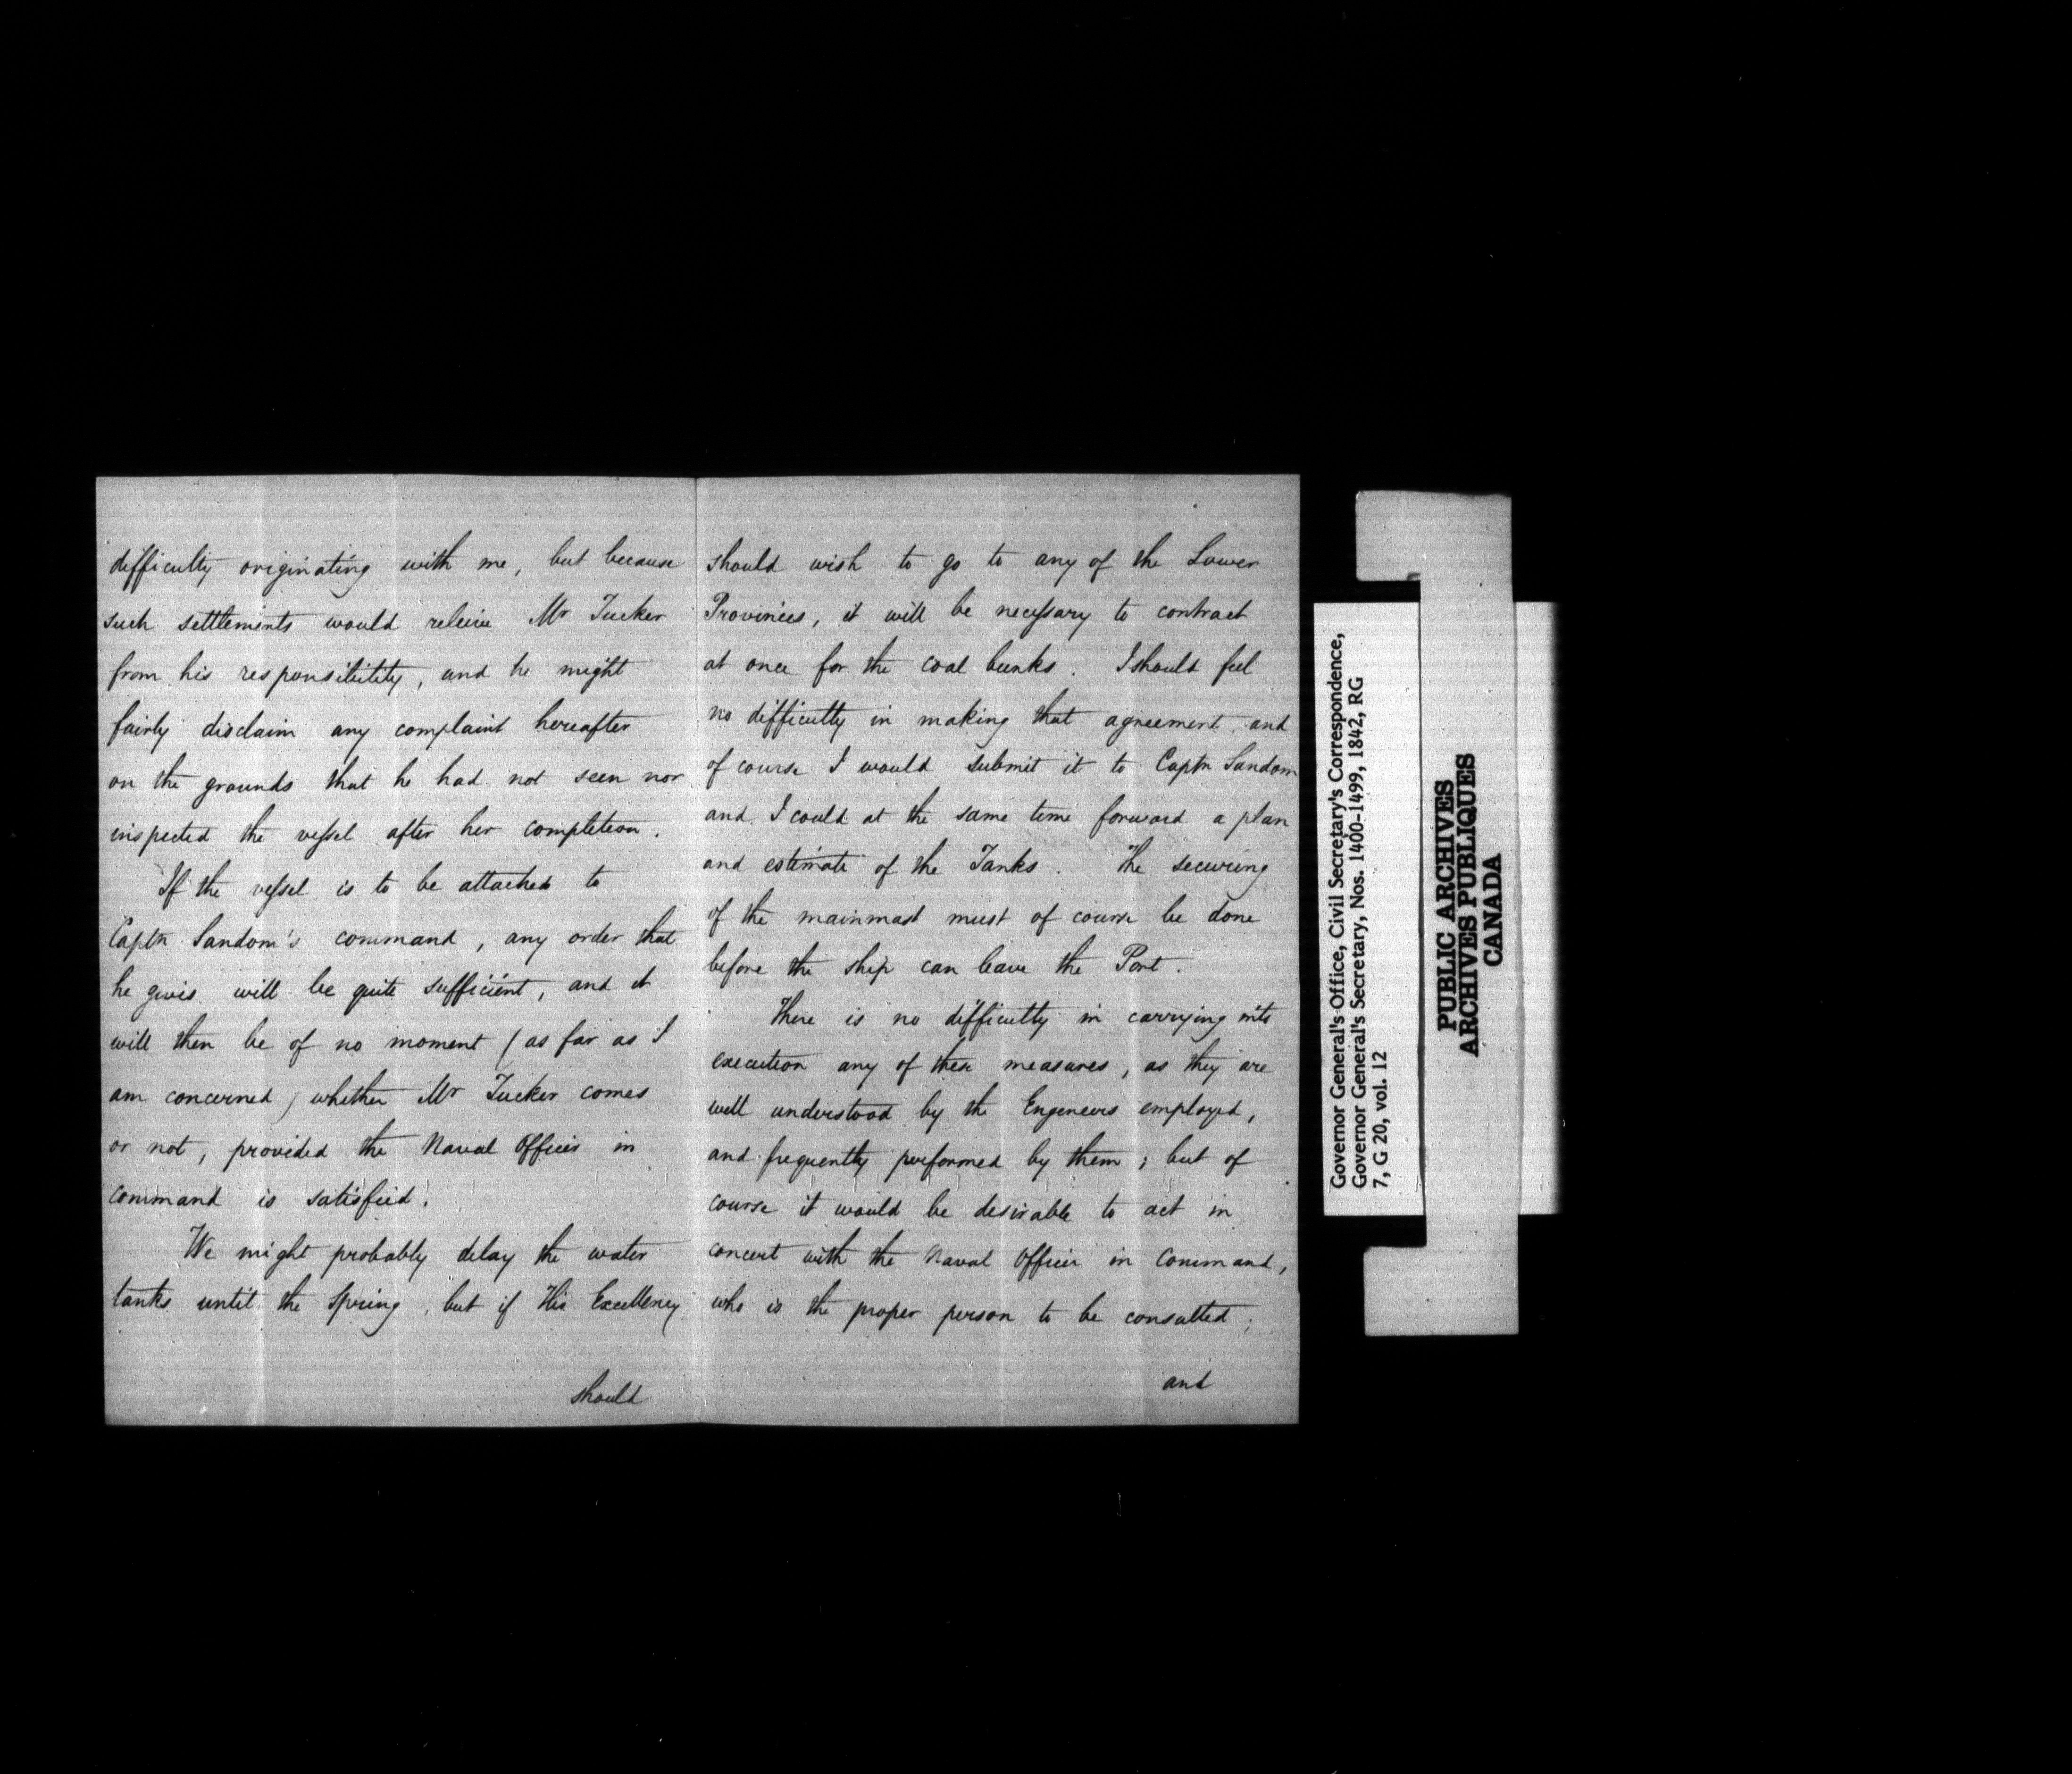 difficulty originating with me, but because
such settlements would releive Mr Tucker
from his responsibility, and he might
fairly disclaim any complaint hereafter
on the grounds that he had not seen nor
inspected the vessel after her completion.
If the vessel is to be attached to
Captn Sandom's command, any order that
he gives will be quite sufficient, and it
will then be of no moment (as far as I
am concerned) whether Mr Tucker comes
or not, provided the Naval Officer in
command is satisfied.
We might probably delay the water
tanks until the Spring, but if His Excellency
should
should wish to go to any of the Lower
Provinces, it will be necessary to contract
at once for the coal bunks. I should feel
no difficulty in making that agreement, and
of course I would submit it to Captn Sandom
and I could at the same time forward a plan
and estimate of the Tanks. The securing
of the mainmast must of course be done
before the ship can leave the Port.
There is no difficulty in carrying into
execution any of these measures, as they are
well understood by the Engeneers employed,
and frequently performed by them; but of
course it would be desirable to act in
concert with the Naval Officer in Command,
who is the proper person to be consulted;
and
Governor General's Office, Civil Secretary's Correspondence,
Governor General's Secretary, Nos. 1400-1499, 1842, RG
7, G 20, vol. 12
PUBLIC ARCHIVES
ARCHIVES PUBLIQUES
CANADA